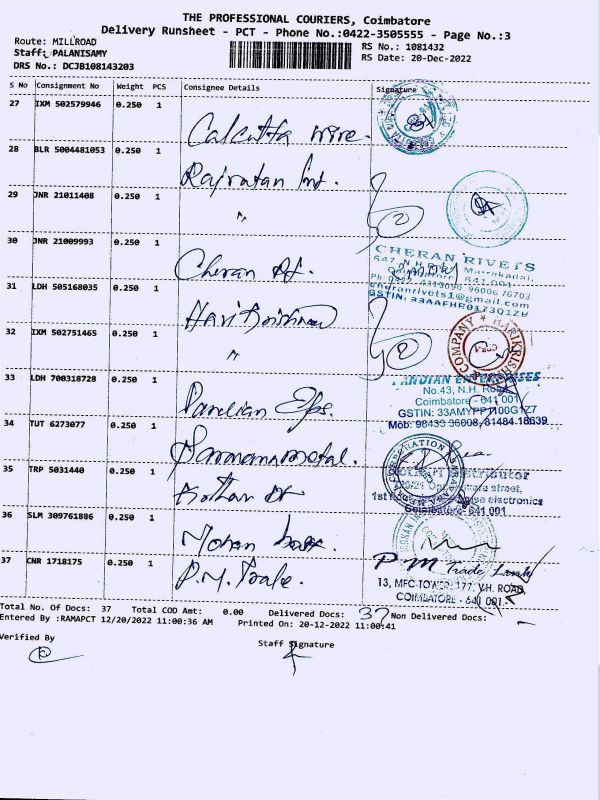 THE PROFESSIONAL COURIERS, Coimbatore
Delivery Runsheet - PCT - Phone No.:0422-3505555 - Page No.:3
Route: MILLROAD
RS No.: 1081432
Staff: PALANISAMY
RS Date: 20-Dec-2022
DRS No.: DCJB108143203
S No Consignment No Weight PCS Consignee Details Signature
27 IXM 502579946 0.250 1
Calcutta wire.
28 BLR 5004481053 0.250 1
Rajratan Ind.
29 JNR 21011408 0.250 1
〃 2
30 JNR 21009993 0.250 1
CHERAN RIVETS
Cheran
Coimbatore - 641 001
cheranrivets1@gmail.com
31 LDH 505168035 0.250 1
GSTIN: 33AAFHR0173Q1ZU
Hari Krishna
32 IXM 502751465 0.250 1
COMPANY * HARIKRISH
〃 2
33 LDH 700318728 0.250 1
PANDIAN ENTERPRISES
No.43, N.H. Road
Pandian Eps.
Coimbatore - 641 001
34 TUT 6273077 0.250 1
Mob: 98433 96008, 81484 18639
35 TRP 5031440 0.250 1
Coimbatore - 641 001
36 SLM 309761886 0.250 1
Mohan
37 CNR 1718175 0.250 1
P.M. Trade.
P M Trade Link
13, MFC TOWER, 177, V.H. ROAD,
COIMBATORE - 641 001.
Total No. Of Docs: 37 Total COD Amt: 0.00 Delivered Docs: 37 Non Delivered Docs:
Entered By :RAMAPCT 12/20/2022 11:00:36 AM Printed On: 20-12-2022 11:00:41
Verified By
Staff Signature